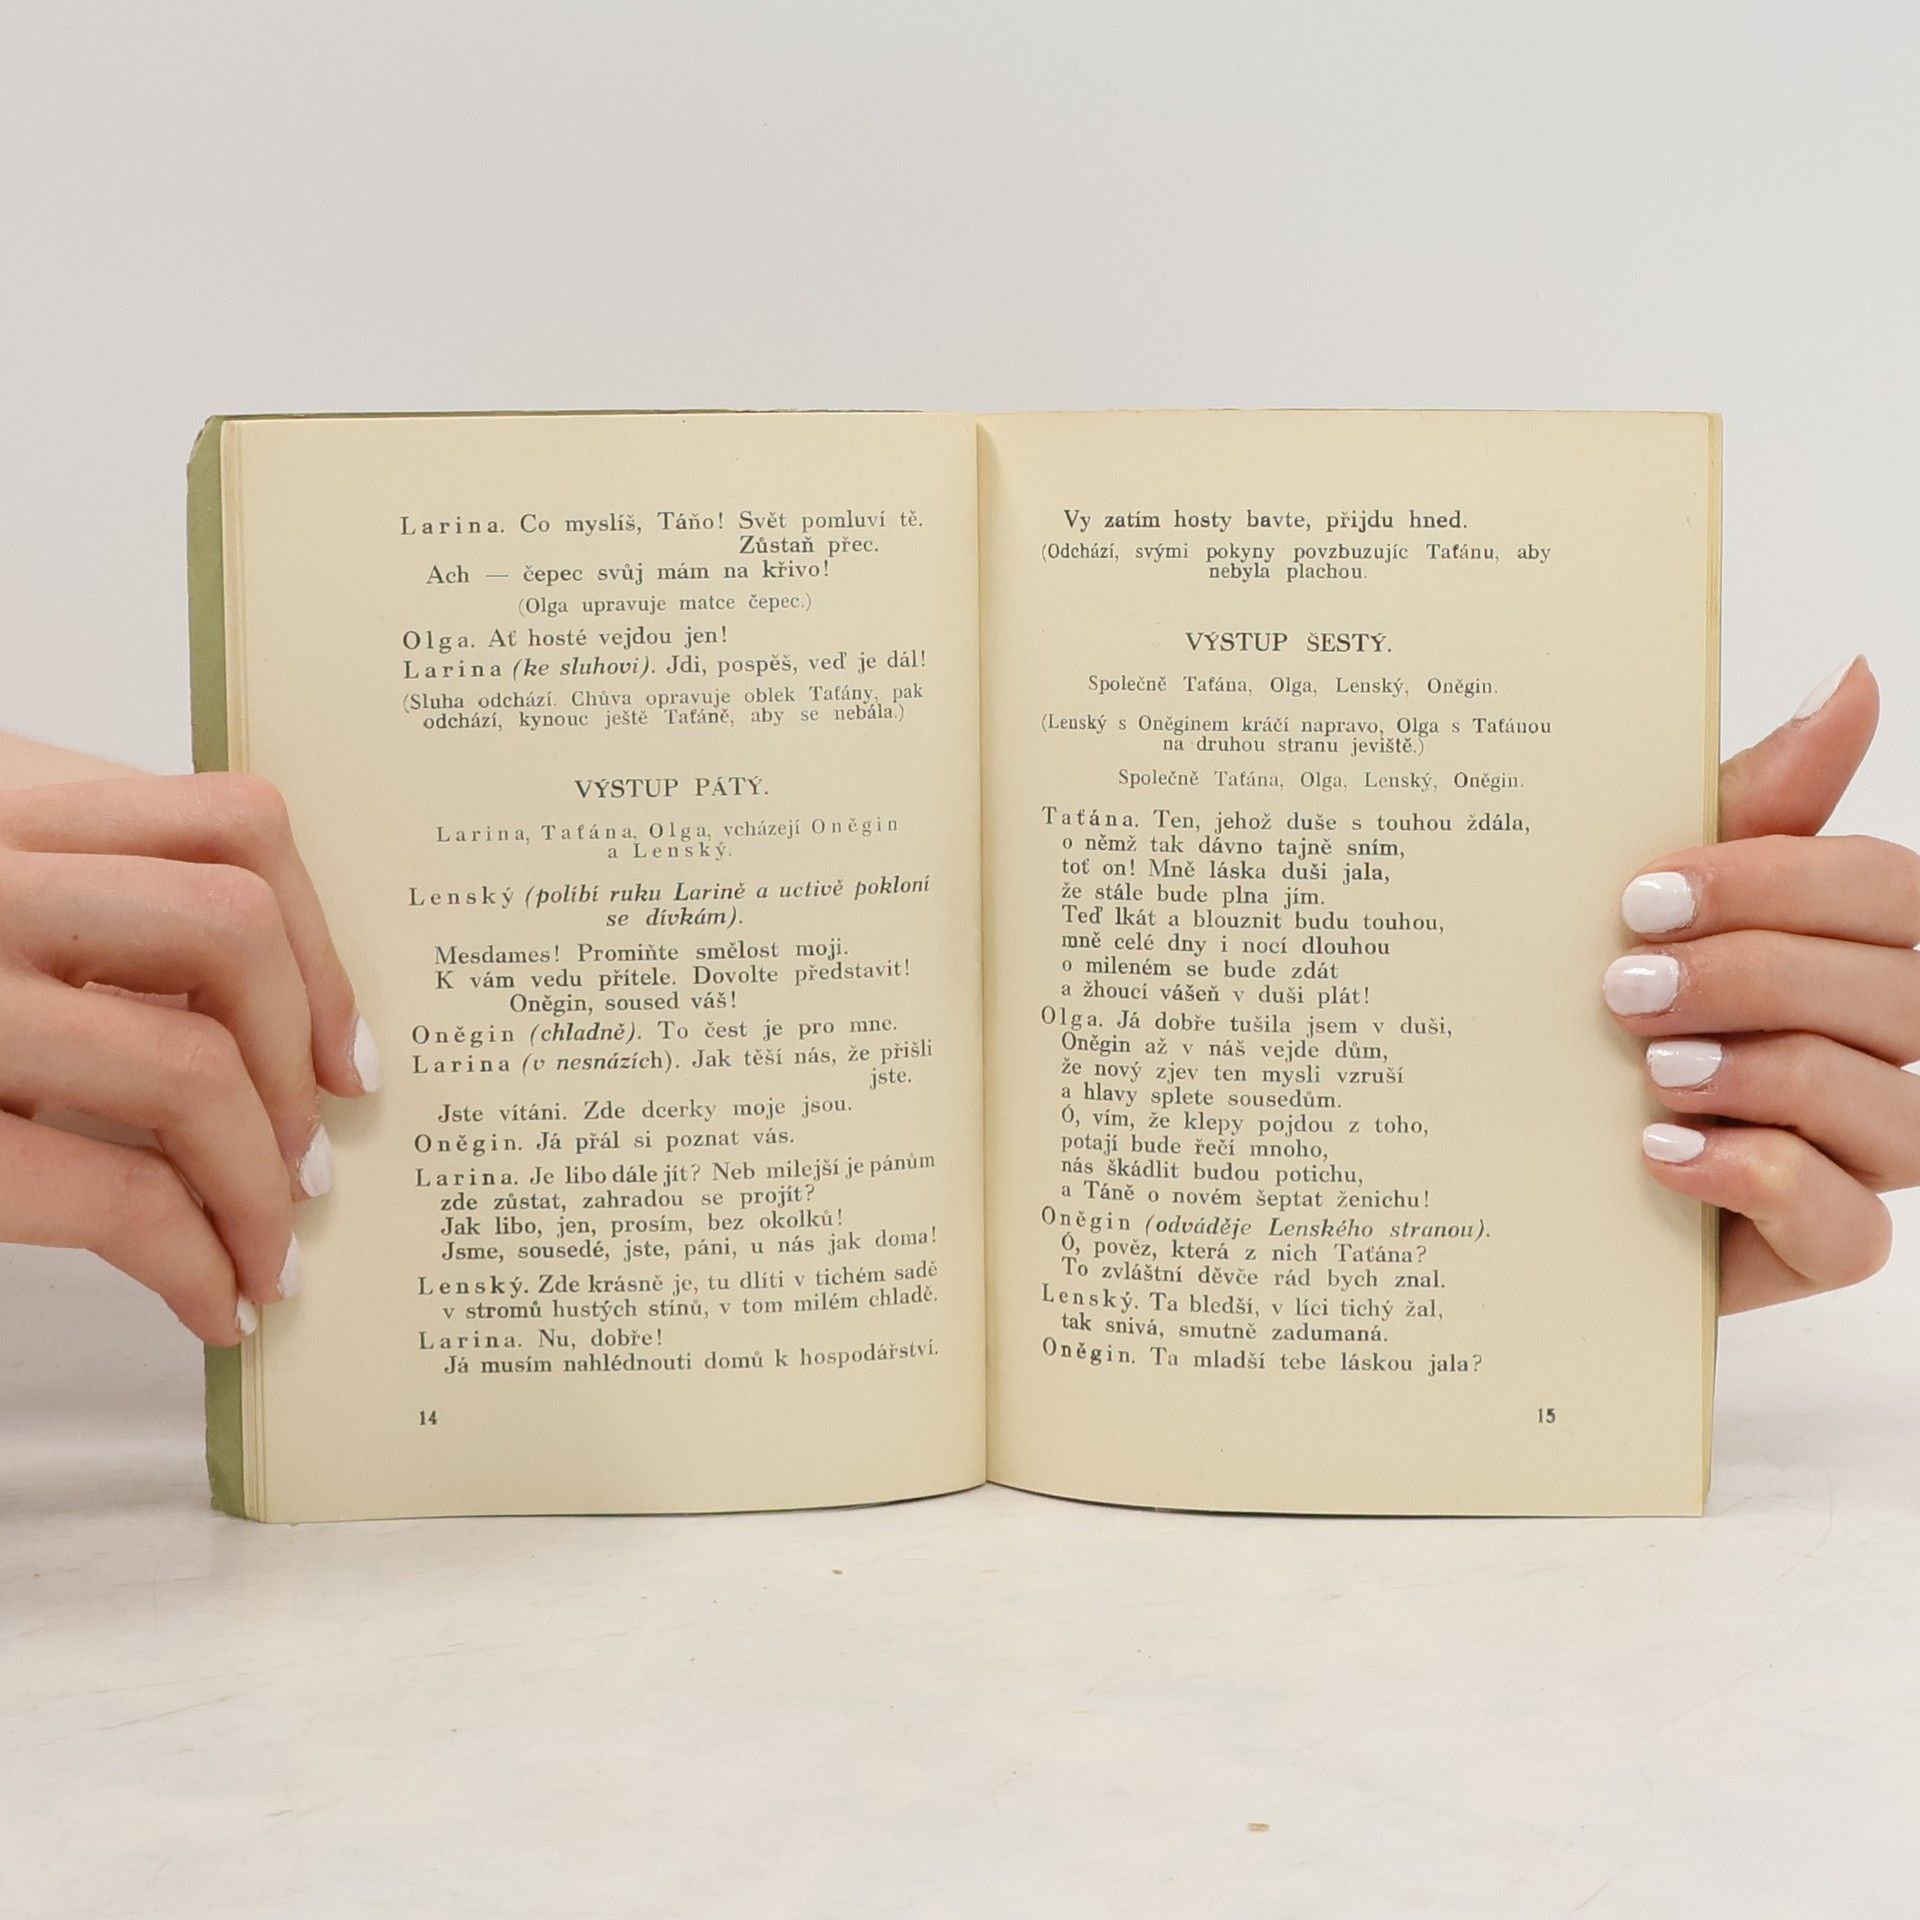 Larina. Co myslíš, Táňo! Svět pomluví tě.
Zůstaň přec.
Ach — čepec svůj mám na křivo!
(Olga upravuje matce čepec.)
Olga. Ať hosté vejdou jen!
Larina (ke sluhovi). Jdi, pospěš, veď je dál!
(Sluha odchází. Chůva opravuje oblek Taťány, pak
odchází, kynouc ještě Taťáně, aby se nebála.)
VÝSTUP PÁTÝ.
Larina, Taťána, Olga, vcházejí Oněgin
a Lenský.
Lenský (políbí ruku Larině a uctivě pokloní
se dívkám).
Mesdames! Promiňte smělost moji.
K vám vedu přítele. Dovolte představit!
Oněgin, soused váš!
Oněgin (chladně). To čest je pro mne.
Larina (v nesnázích). Jak těší nás, že přišli
jste.
Jste vítáni. Zde dcerky moje jsou.
Oněgin. Já přál si poznat vás.
Larina. Je libo dále jít? Neb milejší je pánům
zde zůstat, zahradou se projít?
Jak libo, jen, prosím, bez okolků!
Jsme, sousedé, jste, páni, u nás jak doma!
Lenský. Zde krásně je, tu dlíti v tichém sadě
v stromů hustých stínů, v tom milém chladě.
Larina. Nu, dobře!
Já musím nahlédnouti domů k hospodářství.
14
Vy zatím hosty bavte, přijdu hned.
(Odchází, svými pokyny povzbuzujíc Taťánu, aby
nebyla plachou.
VÝSTUP ŠESTÝ.
Společně Taťána, Olga, Lenský, Oněgin.
(Lenský s Oněginem kráčí napravo, Olga s Taťánou
na druhou stranu jeviště.)
Společně Taťána, Olga, Lenský, Oněgin.
Taťána. Ten, jehož duše s touhou ždála,
o němž tak dávno tajně sním,
toť on! Mně láska duši jala,
že stále bude plna jím.
Teď lkát a blouznit budu touhou,
mně celé dny i nocí dlouhou
o mileném se bude zdát
a žhoucí vášeň v duši plát!
Olga. Já dobře tušila jsem v duši,
Oněgin až v náš vejde dům,
že nový zjev ten mysli vzruší
a hlavy splete sousedům.
Ó, vím, že klepy pojdou z toho,
potají bude řečí mnoho,
nás škádlit budou potichu,
a Táně o novém šeptat ženichu!
Oněgin (odváděje Lenského stranou).
Ó, pověz, která z nich Taťána?
To zvláštní děvče rád bych znal.
Lenský. Ta bledší, v líci tichý žal,
tak snivá, smutně zadumaná.
Oněgin. Ta mladší tebe láskou jala?
15